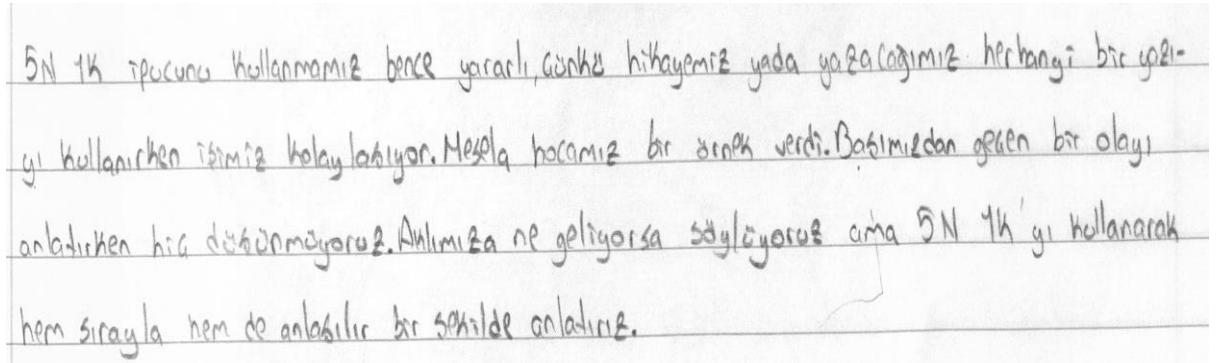 5N 1K ipucunu kullanmamız bence yararlı, çünkü hikayemiz yada yazacağımız herhangi bir yazı-
yı kullanırken işimiz kolaylaşıyor. Mesela hocamız bir örnek verdi. Başımızdan geçen bir olayı
anlatırken hiç düşünmüyoruz. Aklımıza ne geliyorsa söylüyoruz ama 5N 1K'yı kullanarak
hem sırayla hem de anlaşılır bir şekilde anlatırız.